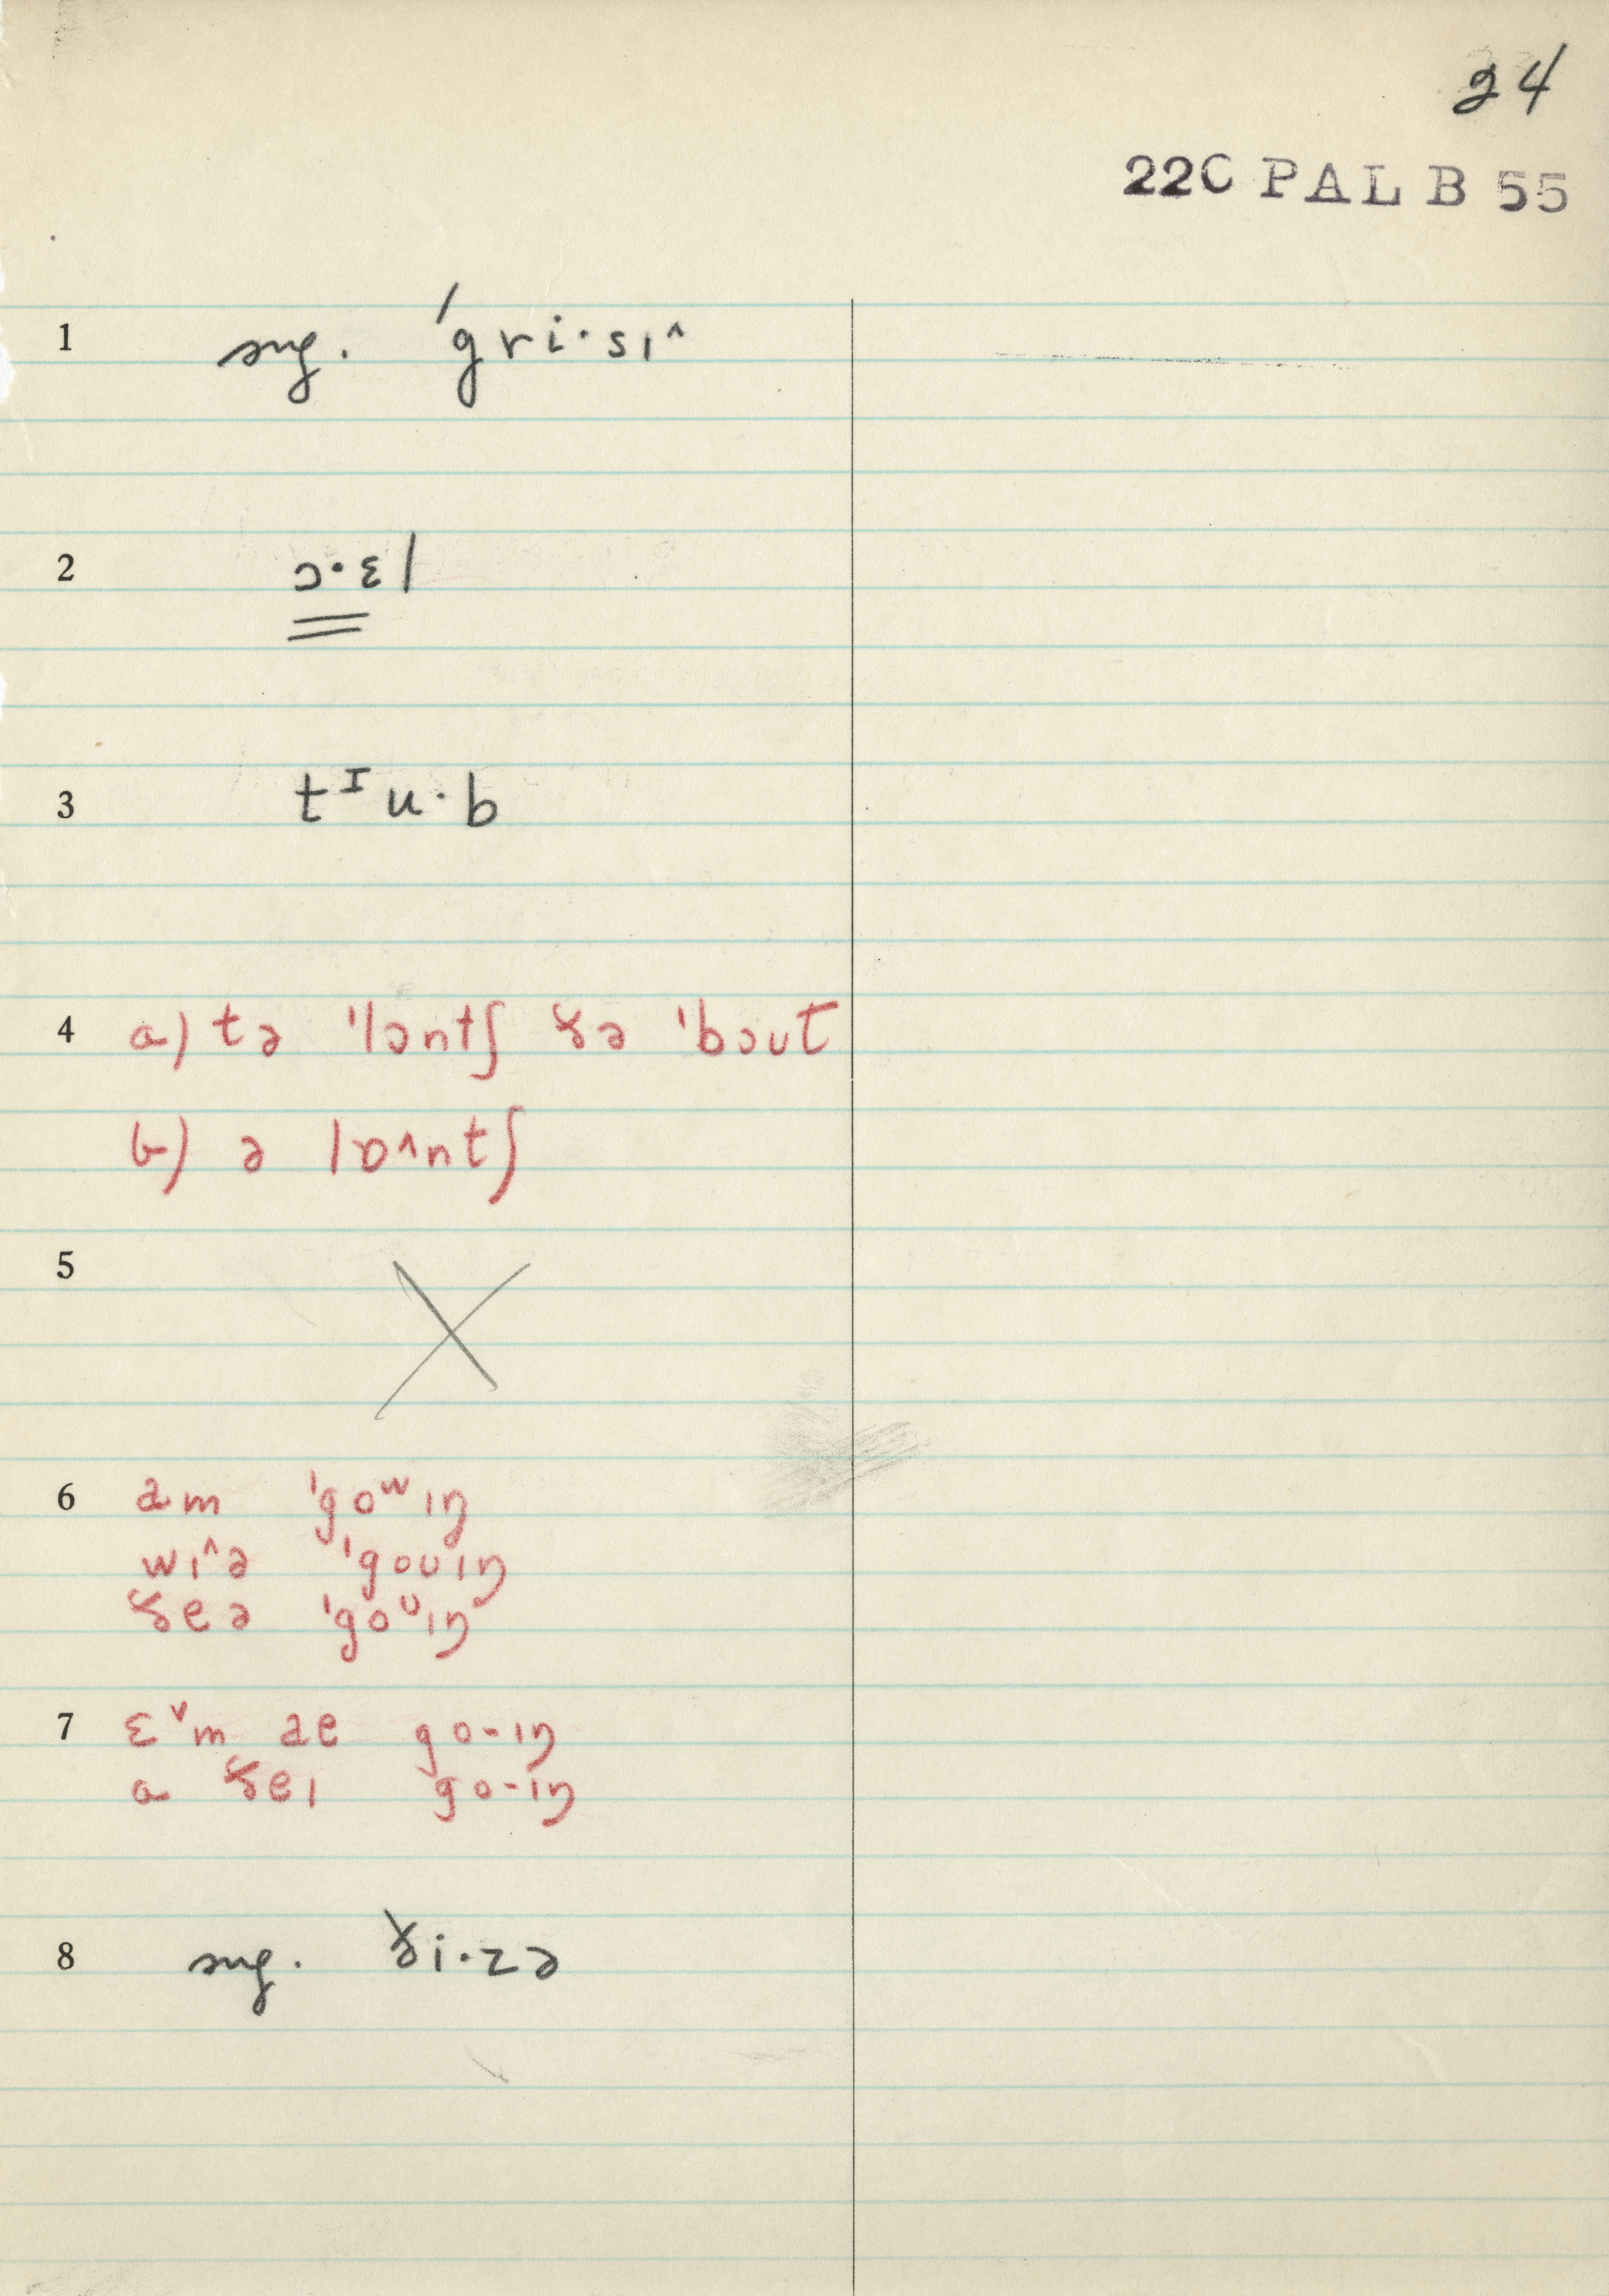 24
22C PAL B 55
1 sug. ˈgri·sɪ^
2 ɔ·ɛl
3 tᴵu·b
4 a) tə ˈlɔntʃ ðə ˈbɔut
b) ə lɒ^ntʃ
5 X
6 əm ˈgoʷɪŋ
wɪ^ə ˈgouɪŋ
ðeə ˈgoᵘɪŋ
7 ɛˇm əe go-ɪŋ
a ðeɪ go-ɪŋ
8 sug. ði·zə